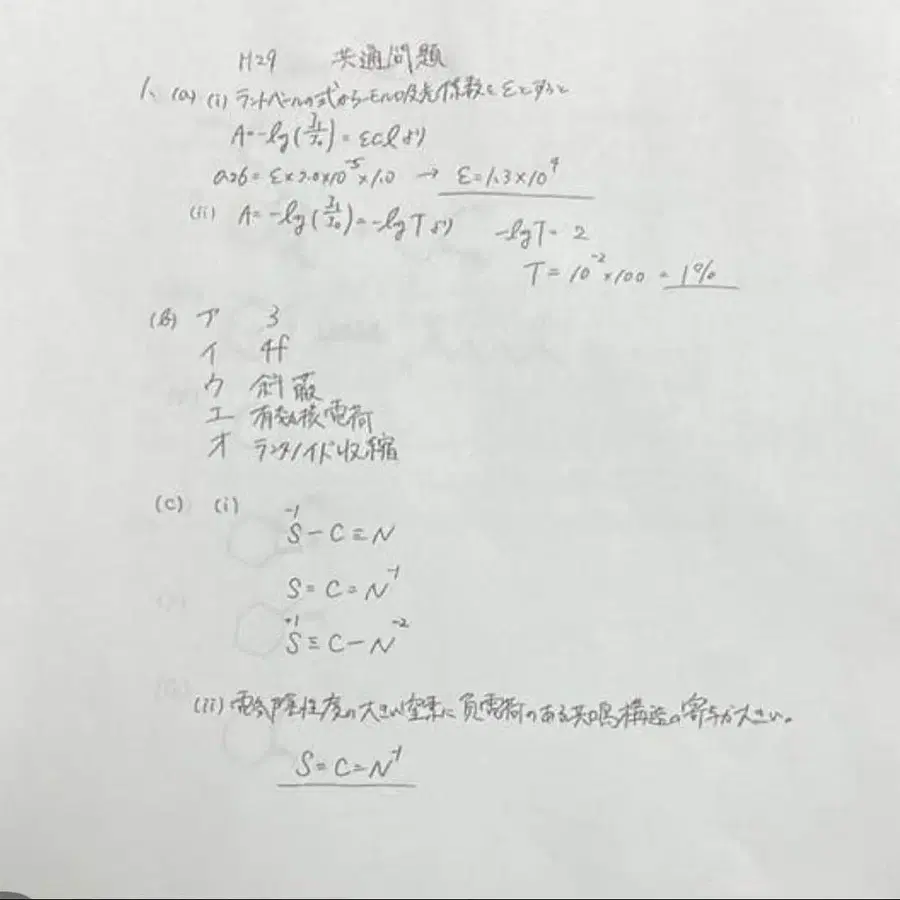 H29 共通問題
1. (a) (i) ラントベールの式からモル吸光係数をεとすると
A=-log(I₁/I₀)=εclより
0.26=ε×2.0×10⁻⁵×1.0 → ε=1.3×10⁴
(ii) A=-log(I₁/I₀)=-logTより -logT=2
T=10⁻²×100=1%
(b) ア 3
イ 4f
ウ 斜蔽
エ 有効核電荷
オ ランタノイド収縮
(c) (i)
⁻¹S-C≡N
S=C=N⁻¹
⁺¹S≡C-N⁻²
(ii) 電気陰性度の大きい窒素に負電荷のある共鳴構造の寄与が大きい。
S=C=N⁻¹